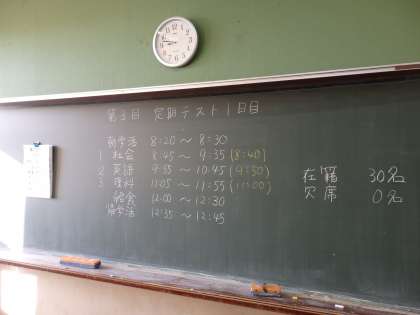 第3回 定期テスト1日目
朝学活 8:20 〜 8:30
1 社会 8:45 〜 9:35 (8:40)
2 英語 9:55 〜 10:45 (9:50)
3 理科 11:05 〜 11:55 (11:00)
給食 12:00 〜 12:30
帰学活 12:35 〜 12:45
在籍 30名
欠席 0名